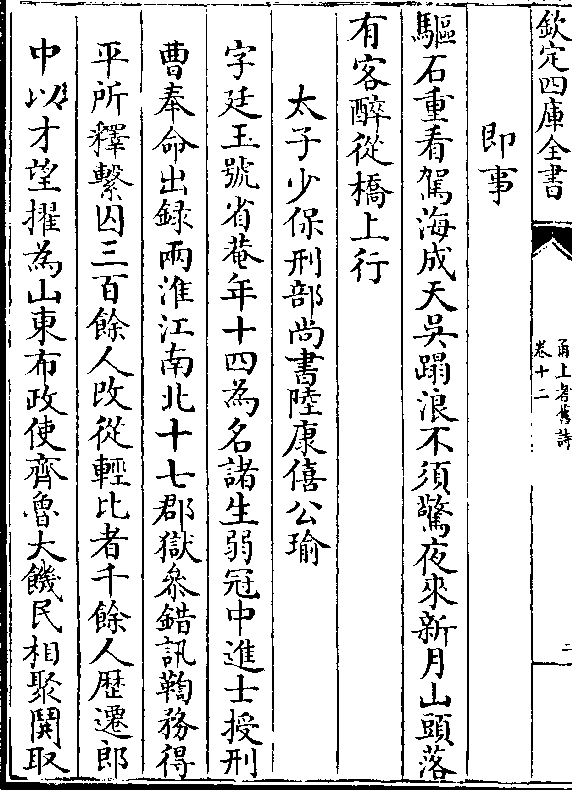 欽定四庫全書
甬上耆舊詩
卷十二
二
即事
驅石重看駕海成天吳蹋浪不須驚夜來新月山頭落
有客醉從橋上行
太子少保刑部尚書陸康僖公瑜
字廷玉號省菴年十四為名諸生弱冠中進士授刑
曹奉命出録兩淮江南北十七郡獄叅錯訊鞫務得
平所釋繫囚三百餘人改從輕比者千餘人歴遷郎
中以才望擢為山東布政使齊魯大饑民相聚鬨取